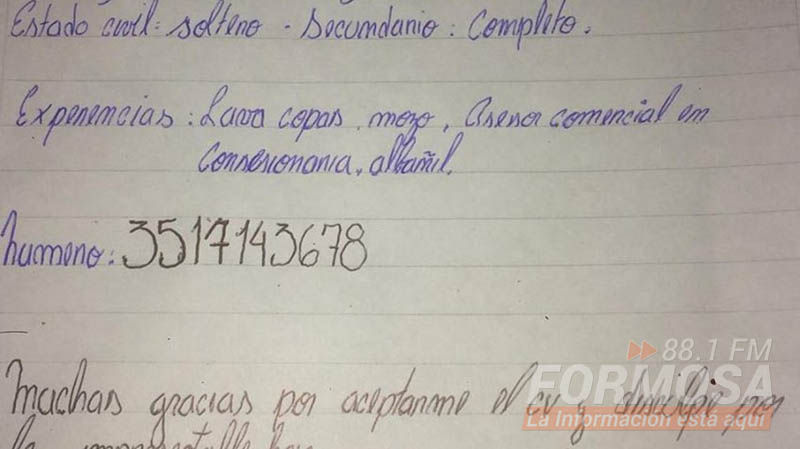 Estado civil: soltero - Secundario: Completo.
Experiencias: Lava copas, mozo, Asesor comercial en
Consesionaria, albañil.
numero: 3517143678
muchas gracias por aceptarme el cv y disculpe por
la
88.1 FM
FORMOSA
La Información está aquí